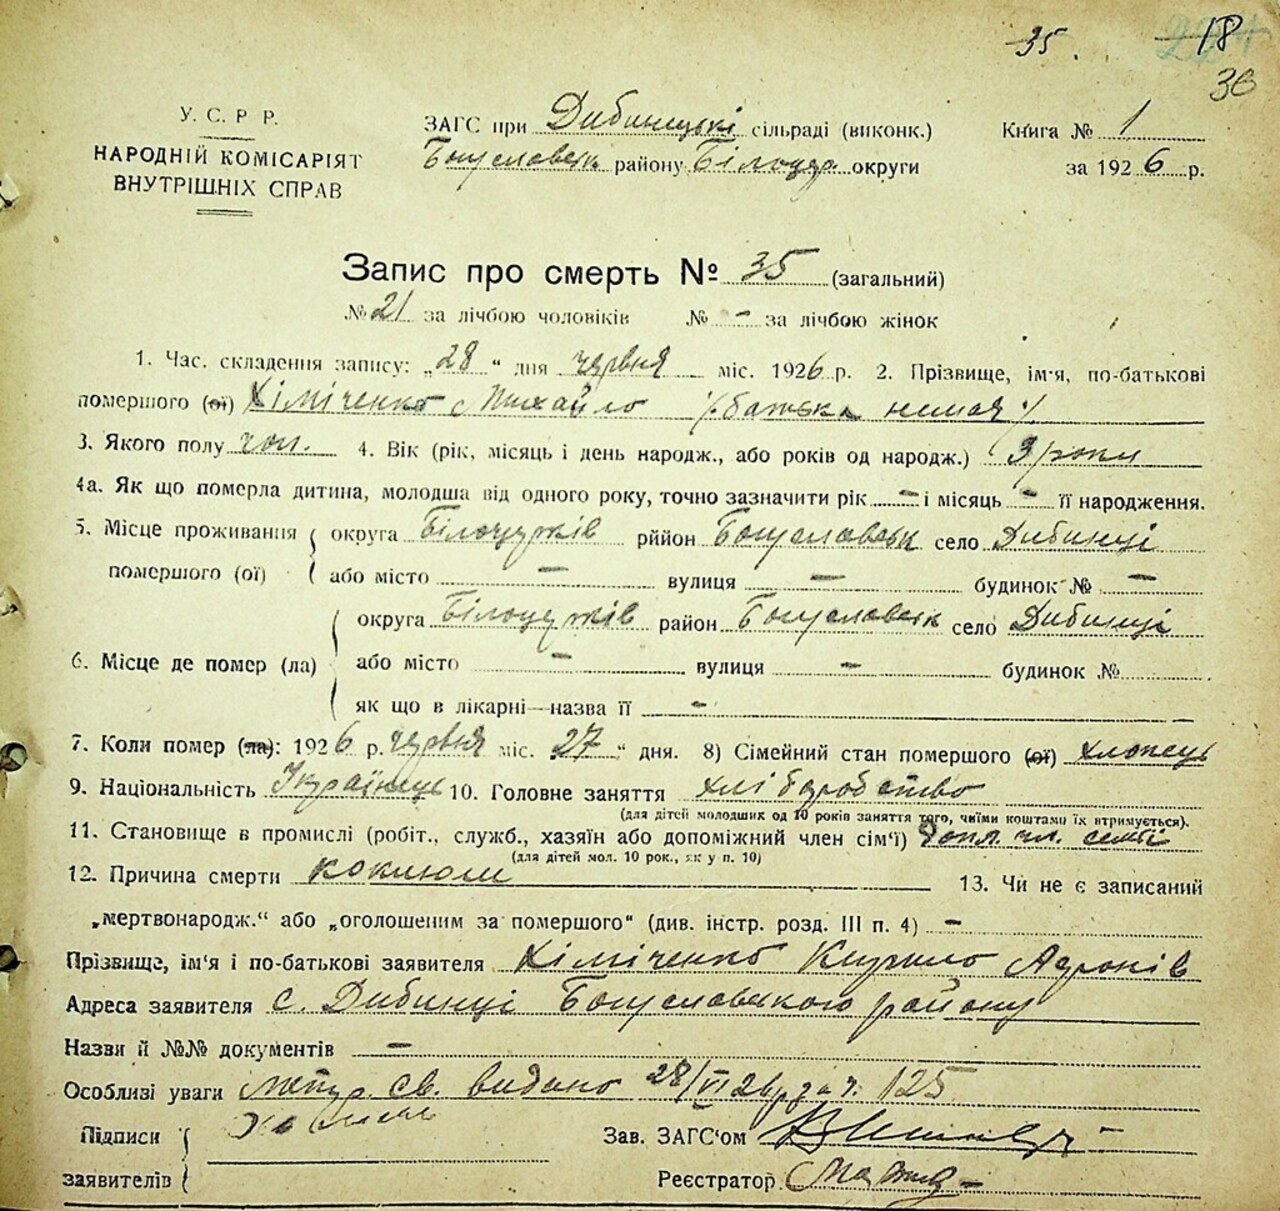 35. 18
36
У. С. Р. Р.
НАРОДНІЙ КОМІСАРІЯТ
ВНУТРІШНІХ СПРАВ
ЗАГС при Дибинецькі сільраді (виконк.)
Богуславськ району Білоцер. округи
Книга № 1
за 1926 р.
Запис про смерть № 35 (загальний)
№ 21 за лічбою чоловіків № - за лічбою жінок
1. Час. складення запису: „28“ дня червня міс. 1926 р. 2. Прізвище, ім'я, по-батькові
помершого (ої) Хіміченко Михайло /батька немає/
3. Якого полу чол. 4. Вік (рік, місяць і день народж., або років од народж.) 3 роки
4а. Як що померла дитина, молодша від одного року, точно зазначити рік - і місяць - її народження.
5. Місце проживання округа Білоцерків рййон Богуславськ село Дибинці
помершого (ої) або місто - вулиця - будинок № -
округа Білоцерків район Богуславськ село Дибинці
6. Місце де помер (ла) або місто - вулиця - будинок №
як що в лікарні—назва її -
7. Коли помер (ла): 1926 р. червня міс. 27 “ дня. 8) Сімейний стан помершого (ої) хлопець
9. Національність Українець 10. Головне заняття хліборобство
(для дітей молодших од 10 років заняття того, чиїми коштами їх втримується).
11. Становище в промислі (робіт., служб., хазяїн або допоміжний член сім'ї) допл. чл. семії
(для дітей мол. 10 рок., як у п. 10)
12. Причина смерти коклюш 13. Чи не є записаний
„мертвонародж.“ або „оголошеним за помершого“ (див. інстр. розд. III п. 4) -
Прізвище, ім'я і по-батькові заявителя Хіміченко Кирило
Адреса заявителя с. Дибинці Богуславського району
Назви й №№ документів -
Особливі уваги метр. св. видано 28/VI 26 р за ч. 125
Підписи
заявителів
Зав. ЗАГС'ом
Реєстратор